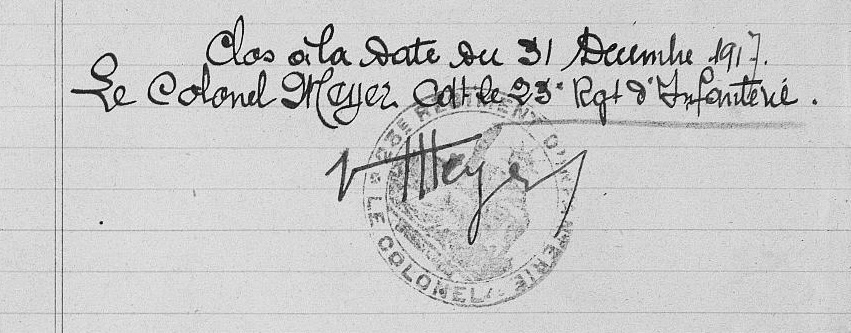 Clos à la Date du 31 Décembre 1917.
Le Colonel Meyer Cdt le 23e Rgt d'Infanterie.
Meyer
23E REGIMENT D'INFANTERIE
LE COLONEL